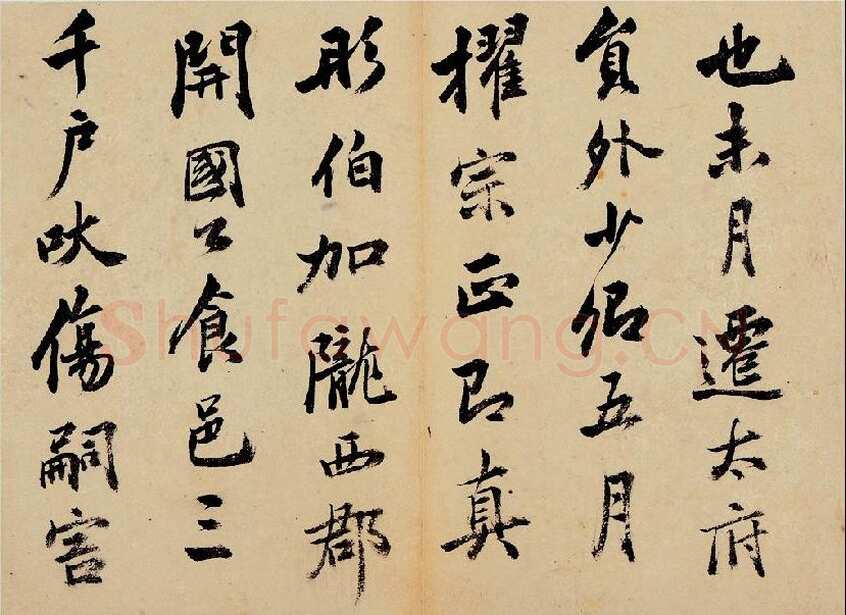 也未月遷太府
員外少卿五月
擢宗正即真
彤伯加隴西郡
開國公食邑三
千户吠傷嗣害
Shufawang.CN